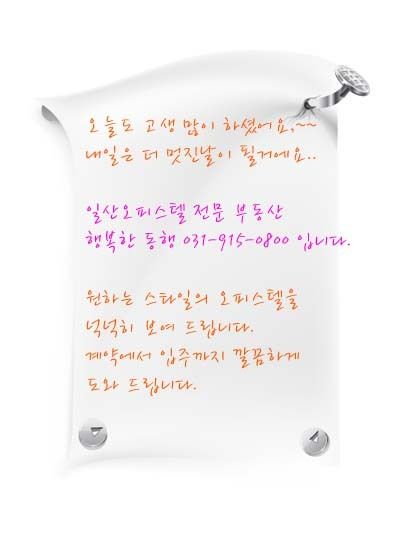 오늘도 고생 많이 하셨어요,~~
내일은 더 멋진날이 될거에요..
일산오피스텔 전문 부동산
행복한 동행 031-915-0800 입니다.
원하는 스타일의 오피스텔을
넉넉히 보여 드립니다.
계약에서 입주까지 깔끔하게
도와 드립니다.